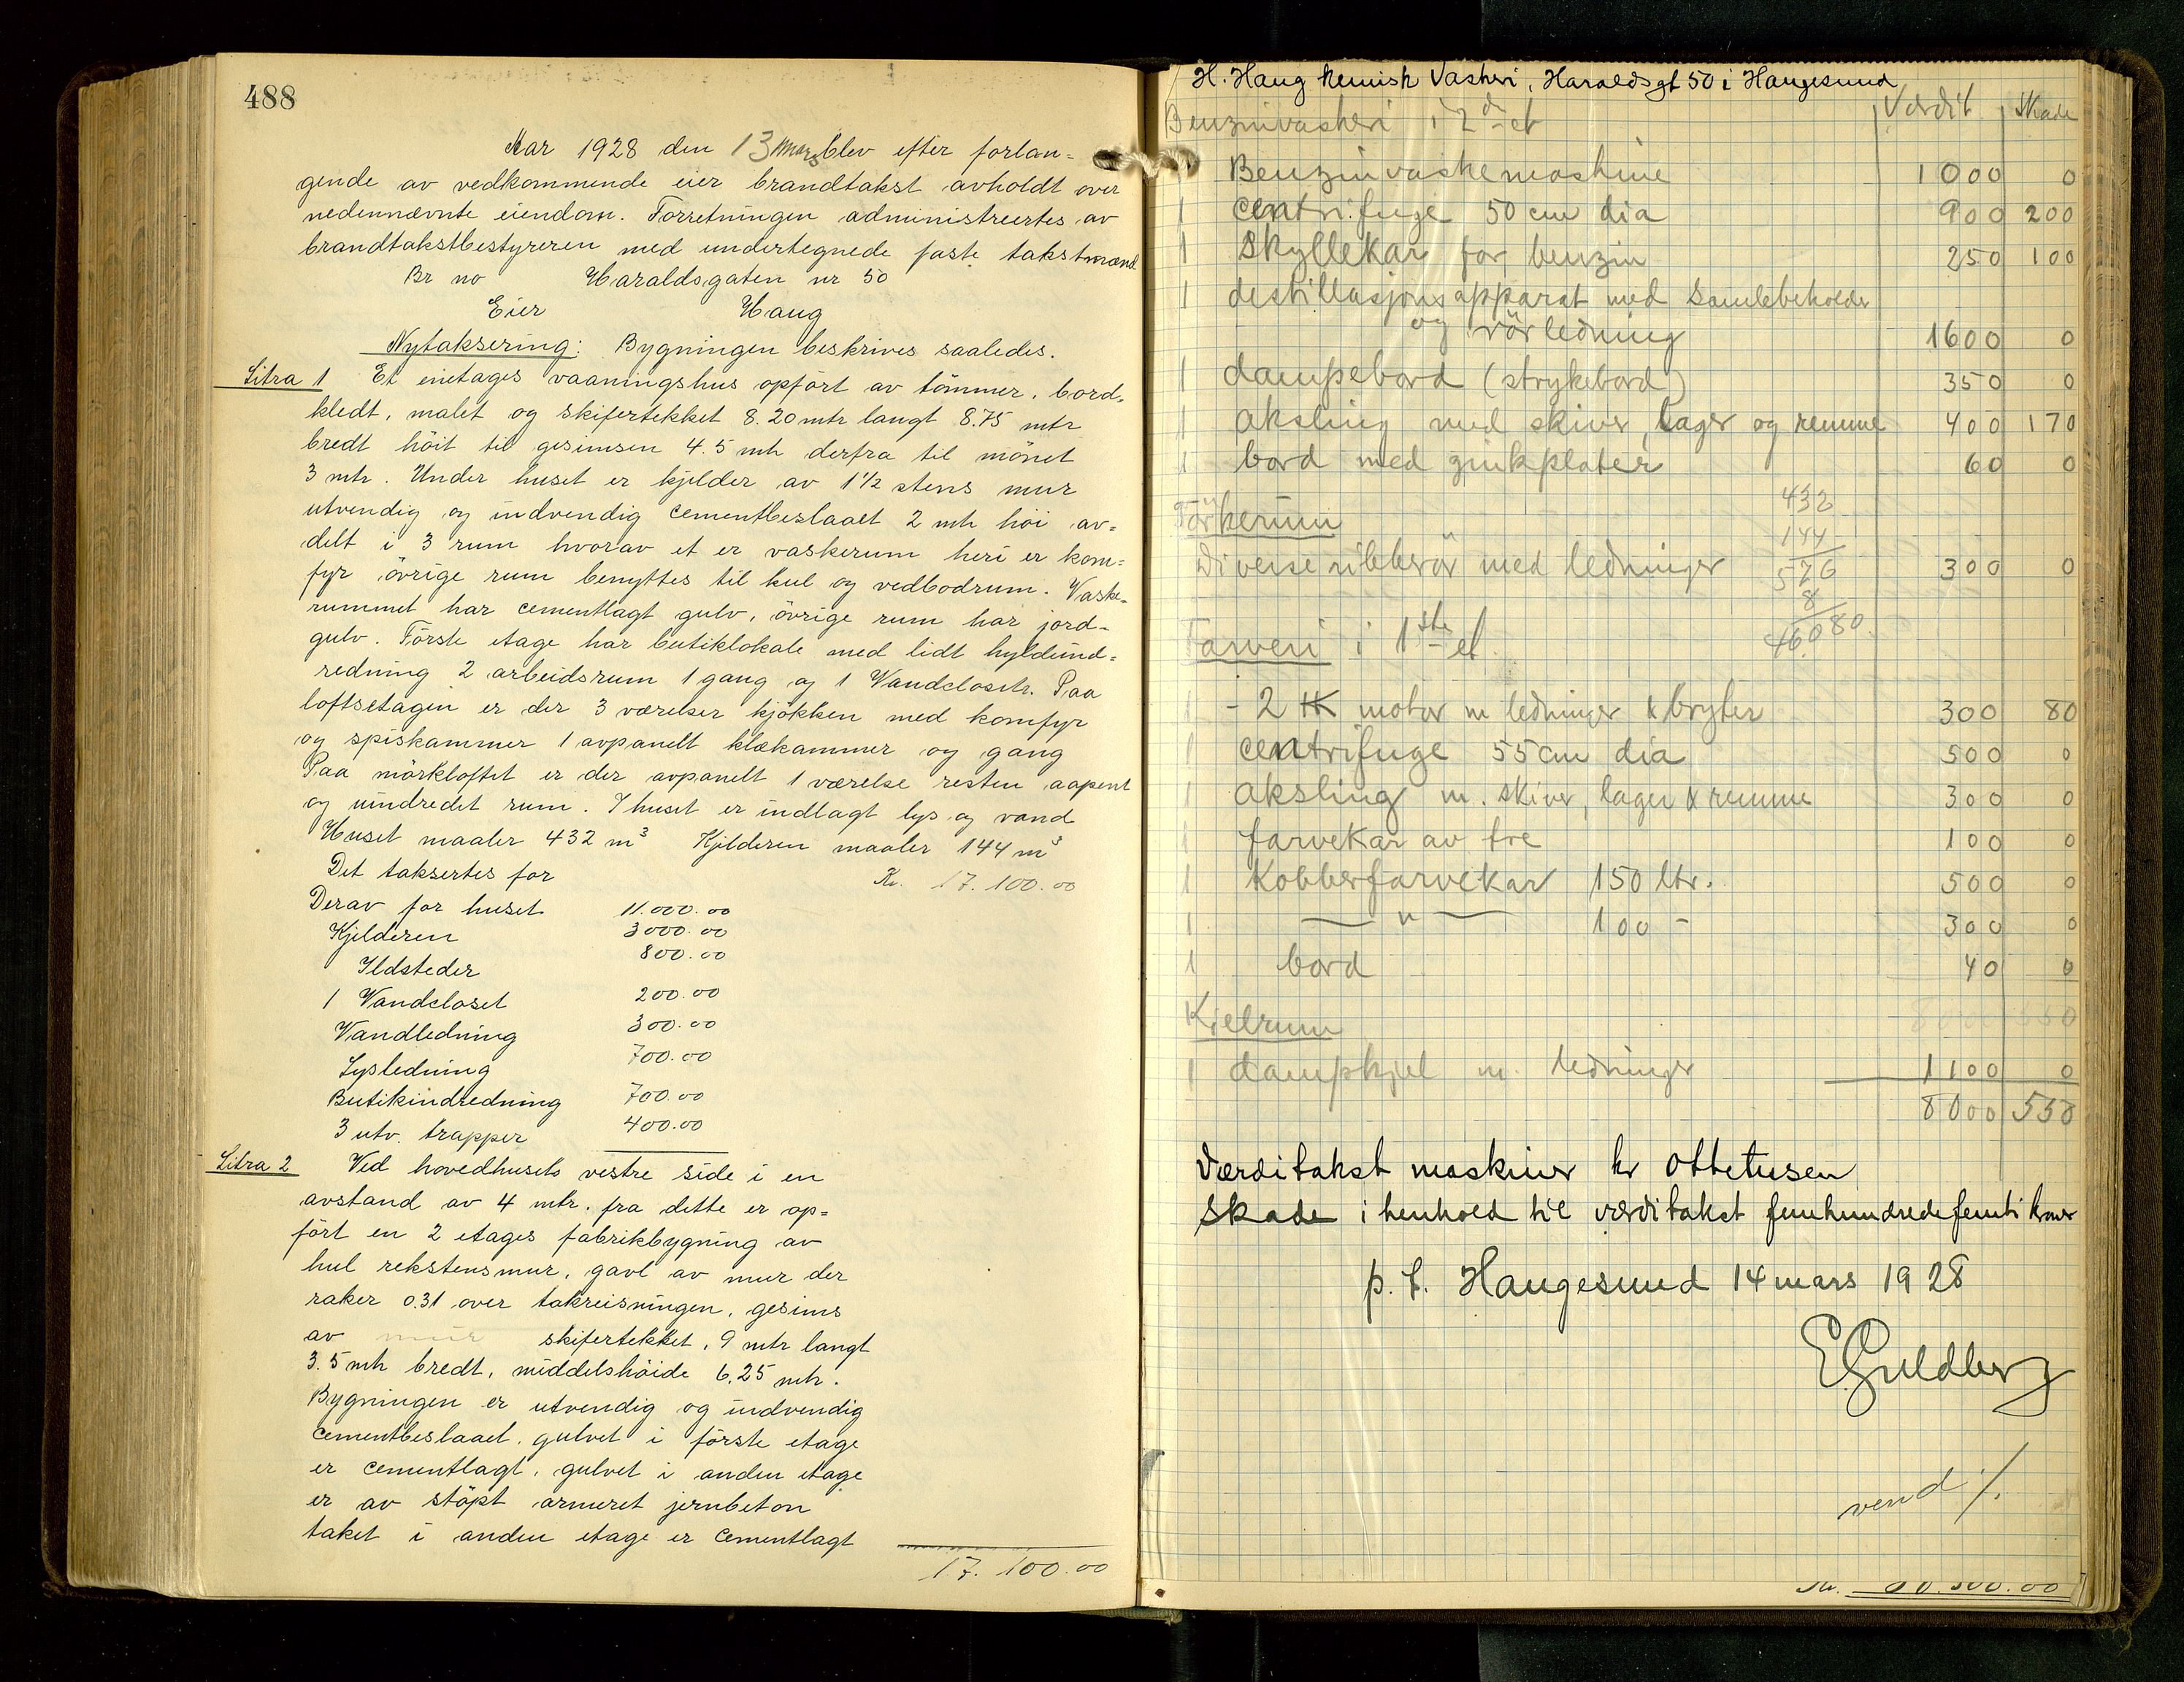 488
Aar 1928 den 13 mars blev efter forlan=
gende av vedkommende eier brandtakst avholdt over
nedennævnte eiendom. Forretningen administreertes av
brandtakstbestyreren med undertegnede faste takstmænd
Br no Haraldsgaten nr 50
Eier Haug
Nytaksering: Bygningen beskrives saaledes.
Litra 1 Et enetages vaaningshus opfört av tömmer, bord-
kledt, malet og skifertekket 8.20 mtr langt 8.75 mtr
bredt höit til gesimsen 4.5 mtr derfra til mönet
3 mtr. Under huset er kjelder av 1½ stens mur
utvendig og indvendig cementbeslaaet 2 mtr höi av=
delt i 3 rum hvorav et er vaskerum heri er kom=
fyr övrige rum benyttes til kul og vedbodrum. Vaske-
rummet har cementlagt gulv, övrige rum har jord-
gulv. Förste etage har butiklokale med lidt hyldeind=
redning 2 arbeidsrum 1 gang og 1 Vandclosetr. Paa
loftsetagen er der 3 værelser kjökken med komfyr
og spiskammer 1 avpanelt klækammer og gang
Paa mörkloftet er der avpanelt 1 værelse resten aapent
og uindredet rum. I huset er indlagt lys og vand
Huset maaler 432 m³ Kjelderen maaler 144 m³
Det taksertes for Kr. 17.100.00
Derav for huset 11.000.00
Kjelderen 3000.00
Ildsteder 800.00
1 Vandcloset 200.00
Vandledning 300.00
Lysledning 700.00
Butikindredning 700.00
3 utv. trapper 400.00
Litra 2 Ved hovedhusets vestre side i en
avstand av 4 mtr. fra dette er op=
fört en 2 etages fabrikbygning av
hul rekstensmur, gavl av mur der
raker 0.31 over takreisningen, gesims
av mur skifertekket, 9 mtr langt
3.5 mtr bredt, middelshöide 6,25 mtr.
Bygningen er utvendig og indvendig
cementbeslaaet, gulvet i förste etage
er cementlagt, gulvet i anden etage
er av stöpt armeret jernbeton
taket i anden etage er cementlagt
17.100.00
H. Haug kemisk Vaskeri, Haraldsgt 50 i Haugesund
Benzinvaskeri i 2d et Værdit Skade
1 Benzinvaskemaskine 1000 0
1 centrifuge 50 cm dia 900 200
1 Skyllekar for benzin 250 100
1 destillasjonsapparat med Samlebeholder
og rörledning 1600 0
1 dampebord (strykebord) 350 0
1 aksling med skiver, lager og remme 400 170
1 bord med zinkplater 60 0
432
Törkerum
144
Diverse ribberör med ledninger 576 300 0
8
46080
Farveri i 1ste et.
1 - 2 HK motor m ledninger & bryter 300 80
1 centrifuge 55 cm dia 500 0
1 aksling m. skiver, lager & remme 300 0
1 farvekar av tre 100 0
1 Kobberfarvekar 150 ltr. 500 0
1 — " — 100 - 300 0
1 bord 40 0
Kjelrum
1 dampkjel m. ledninger 1100 0
8000 550
Værditakst maskiner kr ottetusen
Skade i henhold til værditakst femhundredefemti kroner
p. t. Haugesund 14 mars 1928
E Guldberg
vend ./.